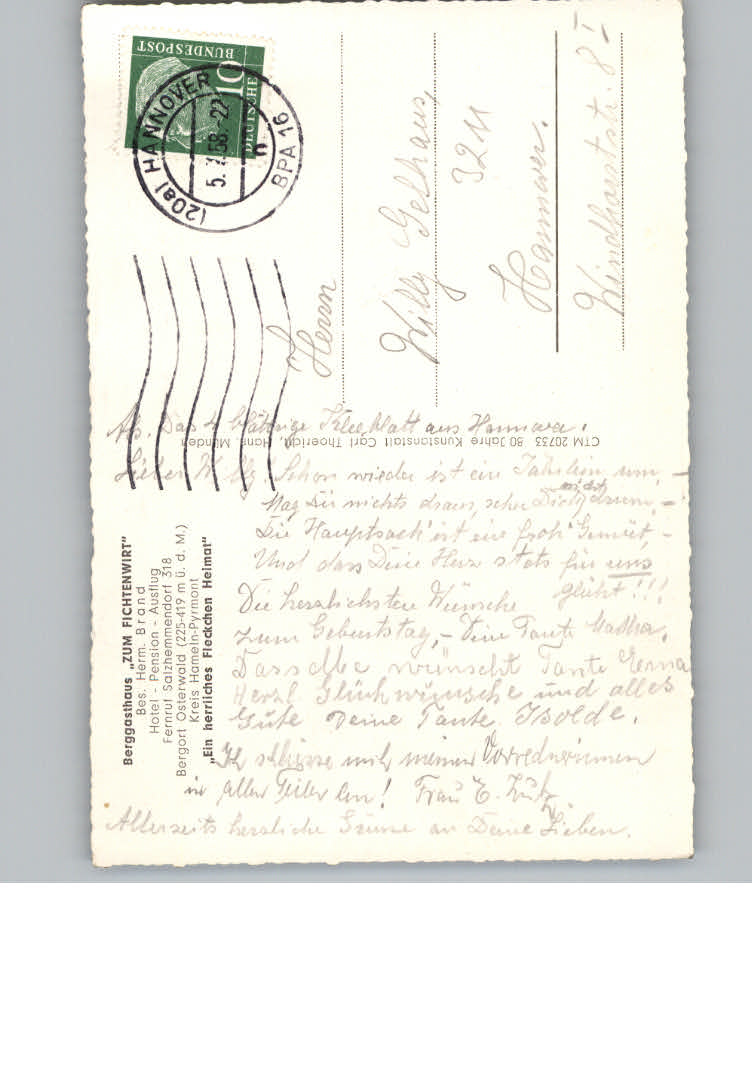 DEUTSCHE
BUNDESPOST
10
(20a) HANNOVER
5. 58.-22
n
BPA 16
Herrn
Willy Gelhaus,
3211
Hannover.
Windhorststr. 8 I
CTM 20753 80 Jahre Kunstanstalt Carl Thoericht, Hann. Münden
Abs. Das 4 blättrige Kleeblatt aus Hannover.
Lieber Willy! Schon wieder ist ein Jährlein um, –
Mag Dir nichts draus, scher Dich nicht drum, –
Die Hauptsach' ist ein froh' Gemüt, –
Und dass Dein Herz stets für uns
glüht!!!
Die herzlichsten Wünsche
zum Geburtstag, – Deine Tante Martha.
Dasselbe wünscht Tante Erna
Herzl. Glückwünsche und alles
Gute Deine Tante Isolde.
Ich schliesse mich meinen Vorrednerinnen
in allen Teilen an! Frau E.
Allerseits herzliche Grüsse an Deine Lieben.
Berggasthaus „ZUM FICHTENWIRT"
Bes. Herm. Brand
Hotel - Pension - Ausflug
Fernruf Salzhemmendorf 318
Bergort Osterwald (225-419 m ü. d. M.)
Kreis Hameln-Pyrmont
„Ein herrliches Fleckchen Heimat"